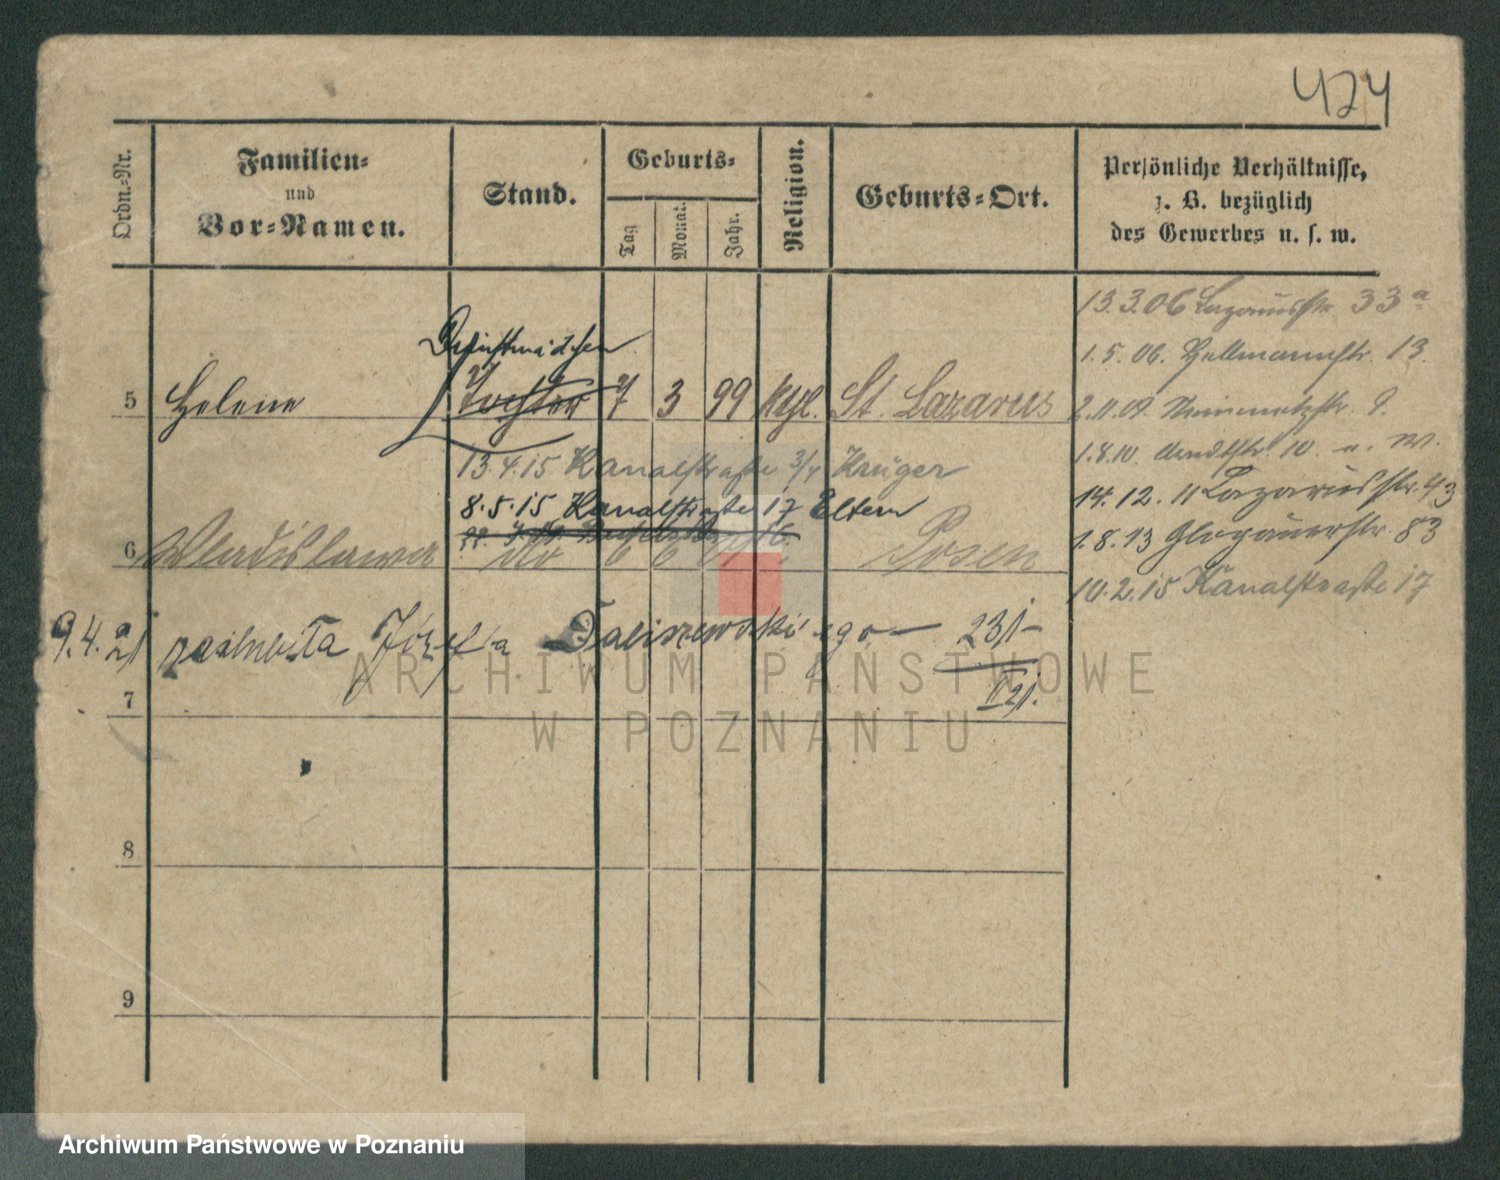 424
Ordn.-Nr.
Familien-
und
Vor-Namen.
Stand.
Geburts-
Tag
Monat.
Jahr.
Religion.
Geburts-Ort.
Persönliche Verhältnisse,
z. B. bezüglich
des Gewerbes u. s. w.
13.3.06 Lazarusstr. 33a
1.5.06. Hellmannstr. 13
Dienstmädchen
5 Helene Tochter 7 3 99 ktl. St. Lazarus
2.11.09. 9.
1.8.10. Arndtstr. 10
13.4.15 Kanalstraße 3/4 Krüger
14.12.11 Lazarusstr. 43
8.5.15 Kanalstraße 17 Eltern
1.8.13 Glogauerstr. 83
6 Wladislawa do 6 6 Posen
10.2.15 Kanalstraße 17
9.4.21 Józefa 23/-
7 II 21.
8
9
ARCHIWUM PAŃSTWOWE
W POZNANIU
Archiwum Państwowe w Poznaniu